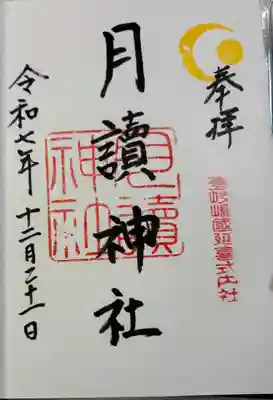 奉拝
壱岐嶋國延喜式内社
月讀神社
月讀
神社
令和七年十二月二十一日